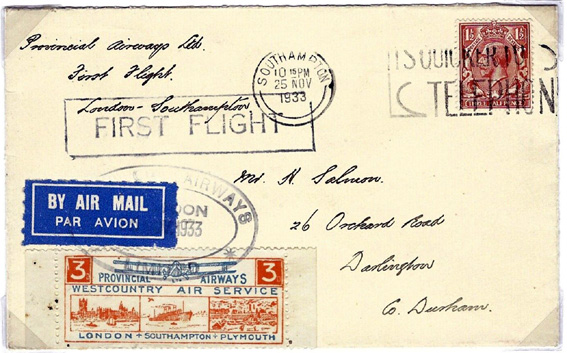 Provincial Airways Ltd.
First Flight.
London - Southampton
FIRST FLIGHT
SOUTHAMPTON
10 15 PM
25 NOV
1933
1½ 1½
THREE HALF PENCE
QUICKER TO
TELEPHON
BY AIR MAIL
PAR AVION
AIRWAYS
1933
Mr. H. Salmon.
26 Orchard Road
Darlington
Co. Durham.
3 3
PROVINCIAL AIRWAYS
WESTCOUNTRY AIR SERVICE
LONDON + SOUTHAMPTON + PLYMOUTH